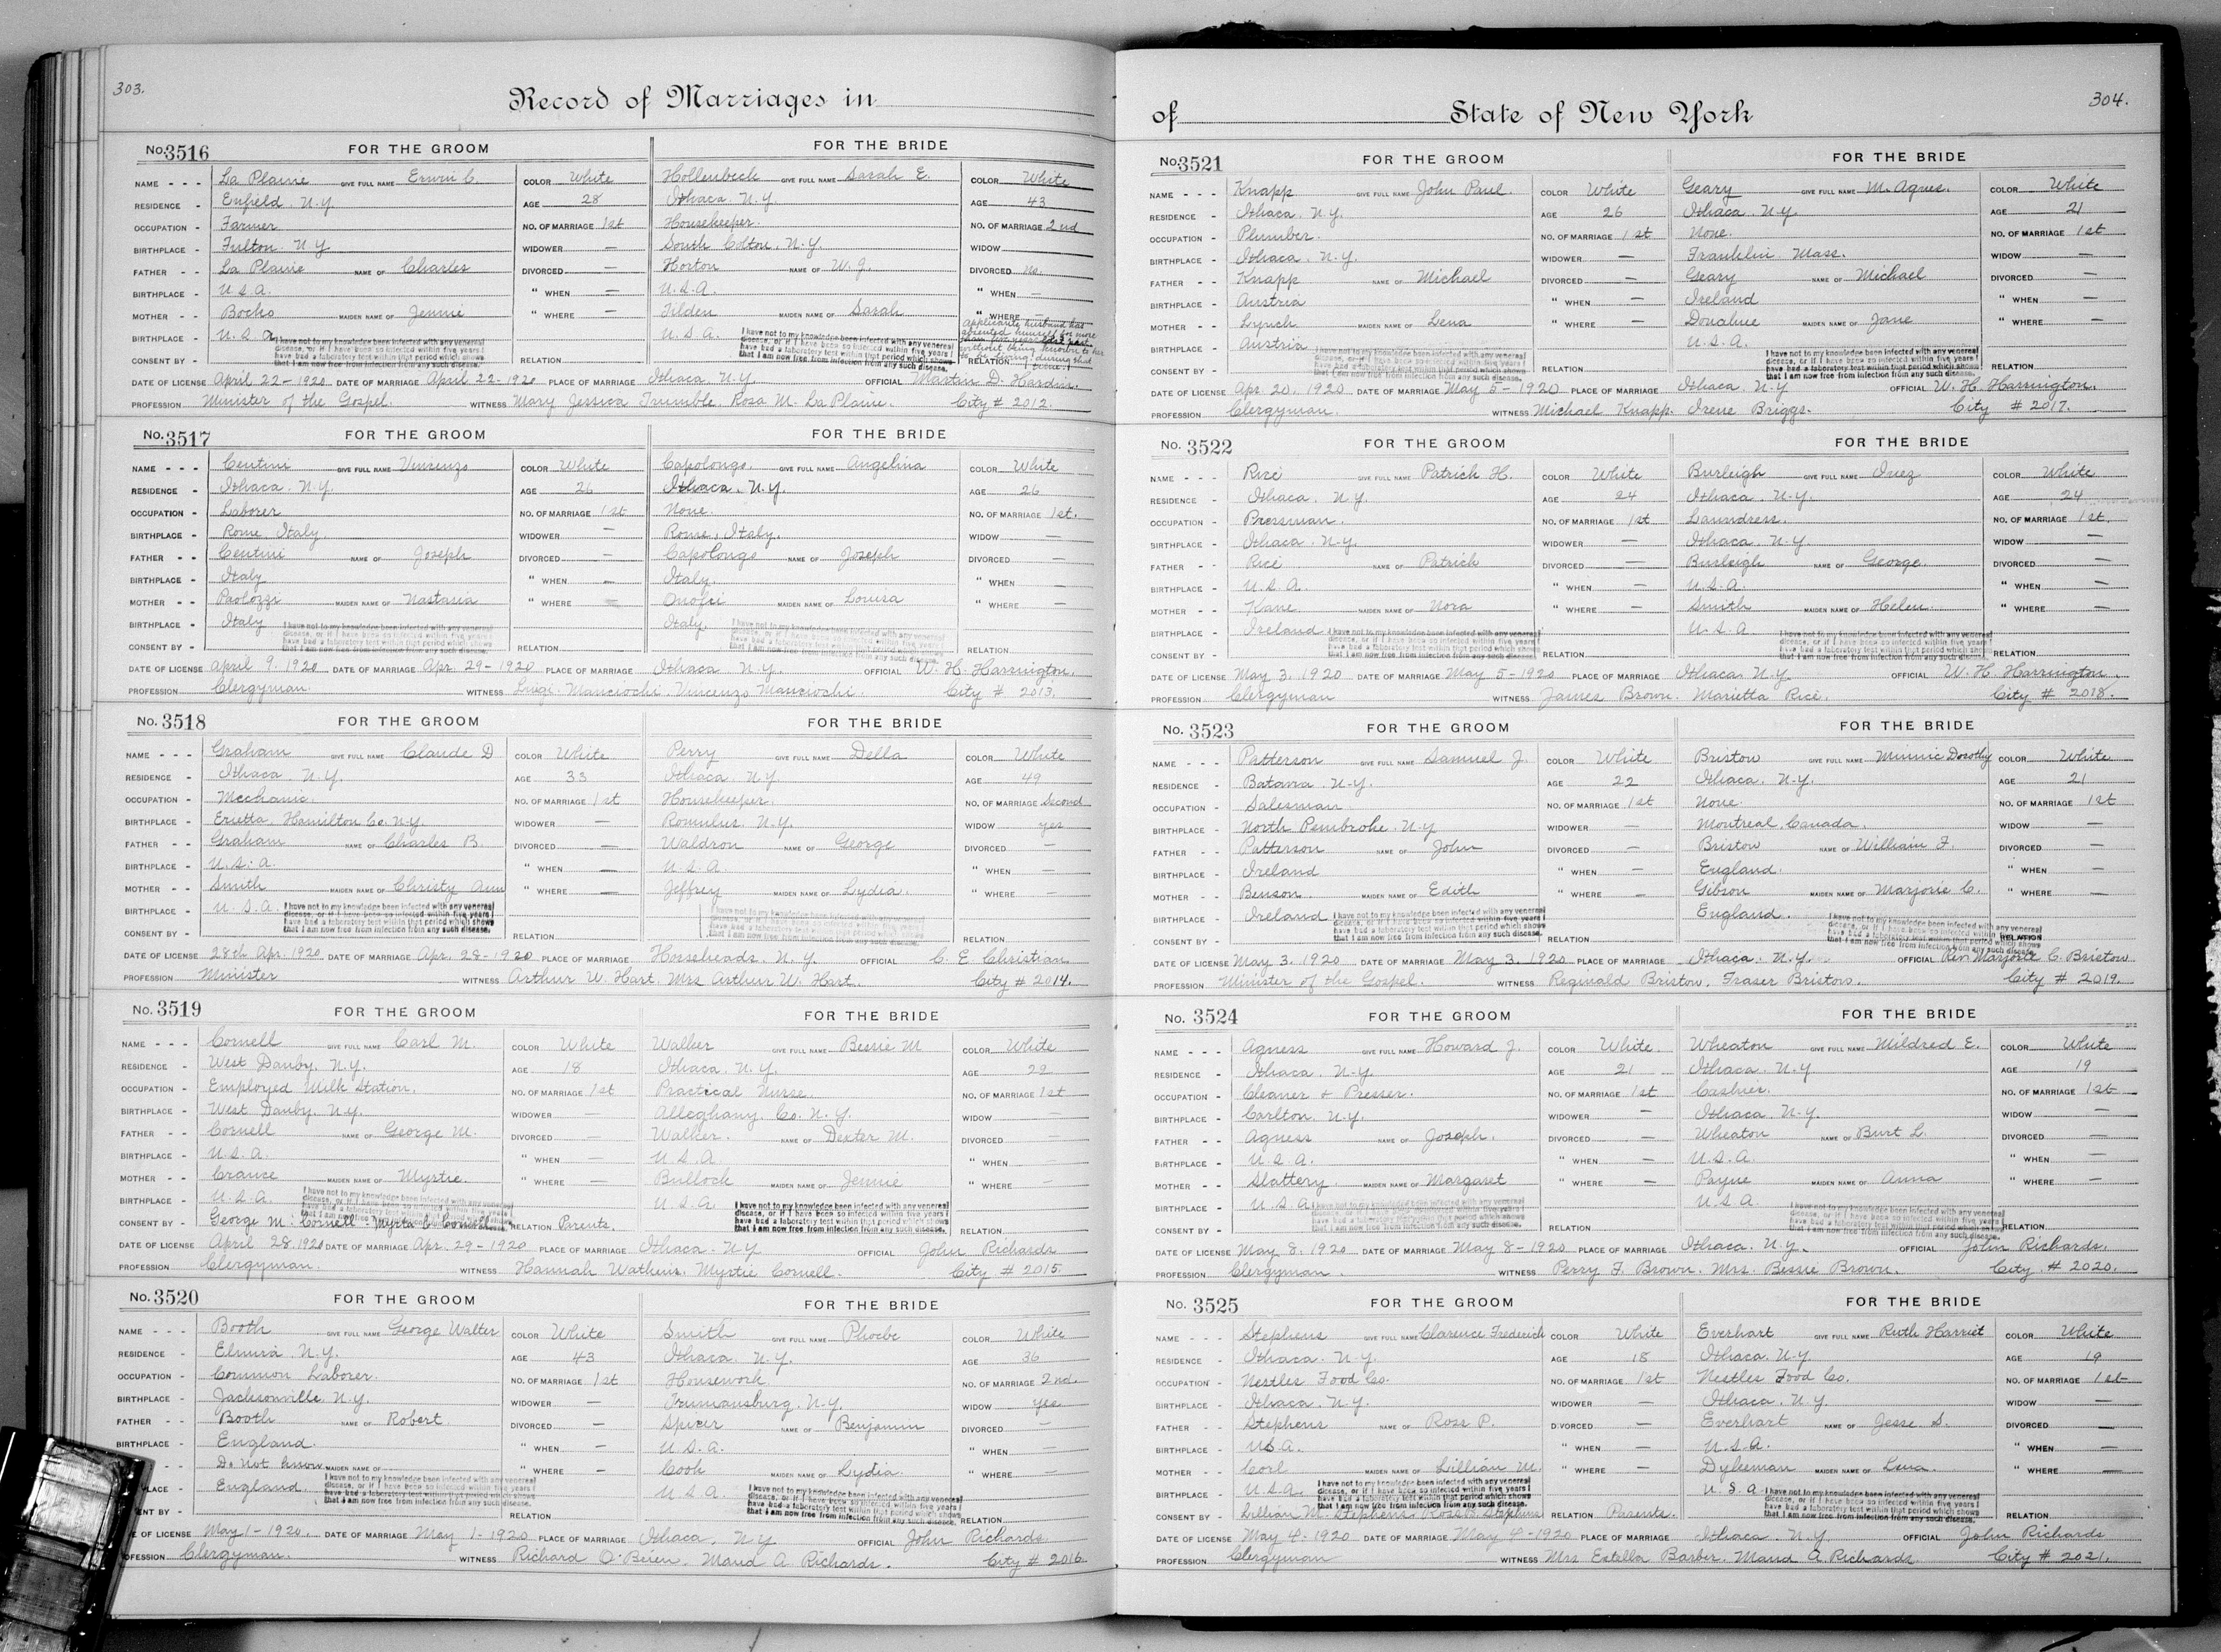 303.
Record of Marriages in
No. 3516 FOR THE GROOM FOR THE BRIDE
NAME - - - La Plaine GIVE FULL NAME Erwin C. COLOR White Hollenbeck GIVE FULL NAME Sarah E. COLOR White
RESIDENCE - Enfield. N.Y. AGE 28 Ithaca. N.Y. AGE 43
OCCUPATION - Farmer NO. OF MARRIAGE 1st Housekeeper. NO. OF MARRIAGE 2nd
BIRTHPLACE - Fulton. N.Y WIDOWER — South Colton. N.Y. WIDOW —
FATHER - - La Plaine NAME OF Charles DIVORCED — Horton NAME OF W. J. DIVORCED no.
BIRTHPLACE - U.S.A. " WHEN — U.S.A. " WHEN —
MOTHER - - MAIDEN NAME OF Jennie " WHERE — Tilden MAIDEN NAME OF Sarah " WHERE —
BIRTHPLACE - U.S.A. U.S.A.
I have not to my knowledge been infected with any venereal
disease, or if I have been so infected within five years I
have had a laboratory test within that period which shows
that I am now free from infection from any such disease.
I have not to my knowledge been infected with any venereal
disease, or if I have been so infected within five years I
have had a laboratory test within that period which shows
that I am now free from infection from any such disease.
applicants husband has
absented himself for more
than five years last past
without being known to her
to be living during that
time.
CONSENT BY - RELATION RELATION
DATE OF LICENSE April 22-1920. DATE OF MARRIAGE April 22-1920 PLACE OF MARRIAGE Ithaca. N.Y. OFFICIAL Martin D. Hardin.
PROFESSION Minister of the Gospel. WITNESS Mary Jessica Trumble. Rosa M. La Plaine. City # 2012.
No. 3517 FOR THE GROOM FOR THE BRIDE
NAME - - - Centini GIVE FULL NAME Vincenzo COLOR White Capolongo. GIVE FULL NAME Angelina COLOR White
RESIDENCE - Ithaca. N.Y. AGE 26 Ithaca. N.Y. AGE 26
OCCUPATION - Laborer NO. OF MARRIAGE 1st None. NO. OF MARRIAGE 1st.
BIRTHPLACE - Rome Italy. WIDOWER — Rome, Italy. WIDOW —
FATHER - - Centini NAME OF Joseph DIVORCED — Capolongo NAME OF Joseph DIVORCED —
BIRTHPLACE - Italy " WHEN — Italy. " WHEN —
MOTHER - - Paolozzi MAIDEN NAME OF Nastasia " WHERE — MAIDEN NAME OF Louisa " WHERE —
BIRTHPLACE - Italy Italy.
I have not to my knowledge been infected with any venereal
disease, or if I have been so infected within five years I
have had a laboratory test within that period which shows
that I am now free from infection from any such disease.
I have not to my knowledge been infected with any venereal
disease, or if I have been so infected within five years I
have had a laboratory test within that period which shows
that I am now free from infection from any such disease.
CONSENT BY - RELATION RELATION
DATE OF LICENSE April 9. 1920 DATE OF MARRIAGE Apr. 29-1920 PLACE OF MARRIAGE Ithaca N.Y. OFFICIAL W. H. Harrington.
PROFESSION Clergyman. WITNESS Luigi Mancioshi. Vincenzo Mancioshi. City # 2013.
No. 3518 FOR THE GROOM FOR THE BRIDE
NAME - - - Graham GIVE FULL NAME Claude D COLOR White Perry GIVE FULL NAME Della COLOR White
RESIDENCE - Ithaca. N.Y. AGE 33 Ithaca. N.Y AGE 49
OCCUPATION - Mechanic. NO. OF MARRIAGE 1st Housekeeper. NO. OF MARRIAGE Second
BIRTHPLACE - Erietta. Hamilton Co. N.Y. WIDOWER — Romulus. N.Y. WIDOW yes
FATHER - - Graham NAME OF Charles B. DIVORCED — Waldron NAME OF George DIVORCED —
BIRTHPLACE - U.S.A. " WHEN — U.S.A. " WHEN —
MOTHER - - Smith MAIDEN NAME OF Christy Ann " WHERE — Jeffrey MAIDEN NAME OF Lydia. " WHERE —
BIRTHPLACE - U.S.A.
I have not to my knowledge been infected with any venereal
disease, or if I have been so infected within five years I
have had a laboratory test within that period which shows
that I am now free from infection from any such disease.
I have not to my knowledge been infected with any venereal
disease, or if I have been so infected within five years I
have had a laboratory test within that period which shows
that I am now free from infection from any such disease.
CONSENT BY - RELATION RELATION
DATE OF LICENSE 28th Apr. 1920. DATE OF MARRIAGE Apr. 28-1920 PLACE OF MARRIAGE Horseheads. N.Y. OFFICIAL C. E Christian
PROFESSION Minister WITNESS Arthur W. Hart. Mrs Arthur W. Hart. City # 2014.
No. 3519 FOR THE GROOM FOR THE BRIDE
NAME - - - Cornell GIVE FULL NAME Carl M. COLOR White Walker GIVE FULL NAME Bessie M COLOR White
RESIDENCE - West Danby. N.Y. AGE 18 Ithaca. N.Y. AGE 22
OCCUPATION - Employed Milk Station. NO. OF MARRIAGE 1st Practical Nurse. NO. OF MARRIAGE 1st
BIRTHPLACE - West Danby. N.Y. WIDOWER — Alleghany. Co. N.Y. WIDOW —
FATHER - - Cornell NAME OF George M. DIVORCED — Walker. NAME OF Dexter M. DIVORCED —
BIRTHPLACE - U.S.A. " WHEN — U.S.A. " WHEN —
MOTHER - - Crance MAIDEN NAME OF Myrtie. " WHERE — Bullock MAIDEN NAME OF Jennie " WHERE —
BIRTHPLACE - U.S.A. U.S.A.
I have not to my knowledge been infected with any venereal
disease, or if I have been so infected within five years I
have had a laboratory test within that period which shows
that I am now free from infection from any such disease.
I have not to my knowledge been infected with any venereal
disease, or if I have been so infected within five years I
have had a laboratory test within that period which shows
that I am now free from infection from any such disease.
CONSENT BY - George M. Cornell - Myrta C. Cornell RELATION Parents. RELATION
DATE OF LICENSE April 28. 1920 DATE OF MARRIAGE Apr. 29-1920 PLACE OF MARRIAGE Ithaca. N.Y OFFICIAL John Richards
PROFESSION Clergyman. WITNESS Hannah Watkins. Myrtie Cornell. City # 2015.
No. 3520 FOR THE GROOM FOR THE BRIDE
NAME - - - Booth GIVE FULL NAME George Walter COLOR White Smith GIVE FULL NAME Phoebe COLOR White
RESIDENCE - Elmira. N.Y. AGE 43 Ithaca. N.Y. AGE 36
OCCUPATION - Common Laborer. NO. OF MARRIAGE 1st Housework. NO. OF MARRIAGE 2nd.
BIRTHPLACE - Jacksonville. N.Y. WIDOWER — Trumansburg. N.Y. WIDOW yes.
FATHER - - Booth NAME OF Robert. DIVORCED — Spicer NAME OF Benjamin DIVORCED —
BIRTHPLACE - England. " WHEN — U.S.A. " WHEN —
- - Do not know. MAIDEN NAME OF " WHERE — Cook MAIDEN NAME OF Lydia. " WHERE —
PLACE - England. U.S.A.
I have not to my knowledge been infected with any venereal
disease, or if I have been so infected within five years I
have had a laboratory test within that period which shows
that I am now free from infection from any such disease.
I have not to my knowledge been infected with any venereal
disease, or if I have been so infected within five years I
have had a laboratory test within that period which shows
that I am now free from infection from any such disease.
ENT BY - RELATION RELATION
E OF LICENSE May 1-1920. DATE OF MARRIAGE May 1-1920. PLACE OF MARRIAGE Ithaca, N.Y OFFICIAL John Richards
OFESSION Clergyman. WITNESS Richard O'Brien. Maud A Richards. City # 2016.
304.
of State of New York
No. 3521 FOR THE GROOM FOR THE BRIDE
NAME - - - Knapp GIVE FULL NAME John Paul. COLOR White Geary GIVE FULL NAME M. Agnes. COLOR White
RESIDENCE - Ithaca. N.Y. AGE 26 Ithaca. N.Y. AGE 21
OCCUPATION - Plumber. NO. OF MARRIAGE 1st None. NO. OF MARRIAGE 1st
BIRTHPLACE - Ithaca. N.Y. WIDOWER — Franklin. Mass. WIDOW —
FATHER - - Knapp NAME OF Michael DIVORCED — Geary NAME OF Michael DIVORCED —
BIRTHPLACE - Austria " WHEN — Ireland " WHEN —
MOTHER - - Lynch MAIDEN NAME OF Lena " WHERE — Donahue MAIDEN NAME OF Jane " WHERE —
BIRTHPLACE - Austria U.S.A.
I have not to my knowledge been infected with any venereal
disease, or if I have been so infected within five years I
have had a laboratory test within that period which shows
that I am now free from infection from any such disease.
I have not to my knowledge been infected with any venereal
disease, or if I have been so infected within five years I
have had a laboratory test within that period which shows
that I am now free from infection from any such disease.
CONSENT BY - RELATION RELATION
DATE OF LICENSE Apr. 20. 1920 DATE OF MARRIAGE May 5-1920 PLACE OF MARRIAGE Ithaca. N.Y OFFICIAL W. H. Harrington.
PROFESSION Clergyman. WITNESS Michael Knapp. Irene Briggs. City # 2017.
No. 3522 FOR THE GROOM FOR THE BRIDE
NAME - - - Rice GIVE FULL NAME Patrick H. COLOR White Burleigh GIVE FULL NAME Inez COLOR White
RESIDENCE - Ithaca. N.Y. AGE 24 Ithaca. N.Y. AGE 24
OCCUPATION - Pressman. NO. OF MARRIAGE 1st Laundress. NO. OF MARRIAGE 1st.
BIRTHPLACE - Ithaca. N.Y. WIDOWER — Ithaca. N.Y. WIDOW —
FATHER - - Rice NAME OF Patrick DIVORCED — Burleigh NAME OF George. DIVORCED —
BIRTHPLACE - U.S.A. " WHEN — U.S.A. " WHEN —
MOTHER - - Kane MAIDEN NAME OF Nora " WHERE — Smith MAIDEN NAME OF Helen. " WHERE —
BIRTHPLACE - Ireland U.S.A
I have not to my knowledge been infected with any venereal
disease, or if I have been so infected within five years I
have had a laboratory test within that period which shows
that I am now free from infection from any such disease.
I have not to my knowledge been infected with any venereal
disease, or if I have been so infected within five years I
have had a laboratory test within that period which shows
that I am now free from infection from any such disease.
CONSENT BY - RELATION RELATION
DATE OF LICENSE May 3. 1920 DATE OF MARRIAGE May 5-1920 PLACE OF MARRIAGE Ithaca. N.Y. OFFICIAL W. H. Harrington.
PROFESSION Clergyman WITNESS James Brown. Marietta Rice. City # 2018.
No. 3523 FOR THE GROOM FOR THE BRIDE
NAME - - - Patterson GIVE FULL NAME Samuel J. COLOR White Bristow GIVE FULL NAME Minnie Dorothy COLOR White
RESIDENCE - Batavia N.Y. AGE 22 Ithaca. N.Y. AGE 21
OCCUPATION - Salesman. NO. OF MARRIAGE 1st None. NO. OF MARRIAGE 1st
BIRTHPLACE - North Pembroke. N.Y WIDOWER — Montreal, Canada. WIDOW —
FATHER - - Patterson NAME OF John DIVORCED — Bristow NAME OF William F. DIVORCED —
BIRTHPLACE - Ireland " WHEN — England. " WHEN —
MOTHER - - Benson MAIDEN NAME OF Edith " WHERE — Gibson MAIDEN NAME OF Marjorie C. " WHERE —
BIRTHPLACE - Ireland England.
I have not to my knowledge been infected with any venereal
disease, or if I have been so infected within five years I
have had a laboratory test within that period which shows
that I am now free from infection from any such disease.
I have not to my knowledge been infected with any venereal
disease, or if I have been so infected within five years I
have had a laboratory test within that period which shows
that I am now free from infection from any such disease.
CONSENT BY - RELATION RELATION
DATE OF LICENSE May 3. 1920 DATE OF MARRIAGE May 3. 1920 PLACE OF MARRIAGE Ithaca. N.Y. OFFICIAL Rev. Marjorie C. Bristow
PROFESSION Minister of the Gospel. WITNESS Reginald Bristow. Fraser Bristow. City # 2019.
No. 3524 FOR THE GROOM FOR THE BRIDE
NAME - - - Agness GIVE FULL NAME Howard J. COLOR White. Wheaton GIVE FULL NAME Mildred E. COLOR White
RESIDENCE - Ithaca. N.Y. AGE 21 Ithaca. N.Y AGE 19
OCCUPATION - Cleaner + Presser. NO. OF MARRIAGE 1st Cashier. NO. OF MARRIAGE 1st
BIRTHPLACE - Carlton. N.Y. WIDOWER — Ithaca. N.Y. WIDOW —
FATHER - - Agness NAME OF Joseph. DIVORCED — Wheaton NAME OF Burt L. DIVORCED —
BIRTHPLACE - U.S.A. " WHEN — U.S.A. " WHEN —
MOTHER - - Slattery. MAIDEN NAME OF Margaret " WHERE — Payne MAIDEN NAME OF Anna " WHERE —
BIRTHPLACE - U.S.A. U.S.A.
I have not to my knowledge been infected with any venereal
disease, or if I have been so infected within five years I
have had a laboratory test within that period which shows
that I am now free from infection from any such disease.
I have not to my knowledge been infected with any venereal
disease, or if I have been so infected within five years I
have had a laboratory test within that period which shows
that I am now free from infection from any such disease.
CONSENT BY - RELATION RELATION
DATE OF LICENSE May 8. 1920 DATE OF MARRIAGE May 8-1920 PLACE OF MARRIAGE Ithaca. N.Y. OFFICIAL John Richards.
PROFESSION Clergyman. WITNESS Perry F. Brown. Mrs. Bessie Brown. City # 2020.
No. 3525 FOR THE GROOM FOR THE BRIDE
NAME - - - Stephens GIVE FULL NAME Clarence Frederick COLOR White Everhart GIVE FULL NAME Ruth Harriet COLOR White
RESIDENCE - Ithaca. N.Y. AGE 18 Ithaca. N.Y. AGE 19
OCCUPATION - Nestles Food Co. NO. OF MARRIAGE 1st Nestles Food Co. NO. OF MARRIAGE 1st
BIRTHPLACE - Ithaca. N.Y. WIDOWER — Ithaca. N.Y. WIDOW —
FATHER - - Stephens NAME OF Ross P. DIVORCED — Everhart NAME OF Jesse S. DIVORCED —
BIRTHPLACE - U.S.A. " WHEN — U.S.A. " WHEN —
MOTHER - - Corl MAIDEN NAME OF Lillian M. " WHERE — Dykeman MAIDEN NAME OF Lena. " WHERE —
BIRTHPLACE - U.S.A. U.S.A
I have not to my knowledge been infected with any venereal
disease, or if I have been so infected within five years I
have had a laboratory test within that period which shows
that I am now free from infection from any such disease.
I have not to my knowledge been infected with any venereal
disease, or if I have been so infected within five years I
have had a laboratory test within that period which shows
that I am now free from infection from any such disease.
CONSENT BY - Lillian M. Stephens. Ross P. Stephens RELATION Parents. RELATION
DATE OF LICENSE May 4-1920 DATE OF MARRIAGE May 4-1920 PLACE OF MARRIAGE Ithaca. N.Y OFFICIAL John Richards
PROFESSION Clergyman WITNESS Mrs Estella Barber. Maud A Richards City # 2021.